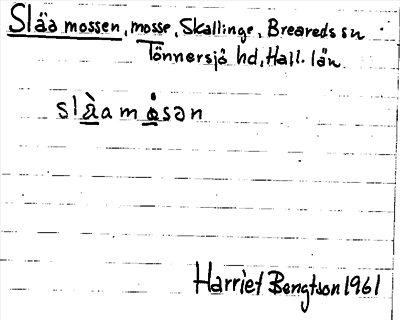 Slåa mossen, mosse, Skallinge, Breareds sn
Tönnersjö hd, Hall. län.
slàamȯsən
Harriet Bengtson 1961